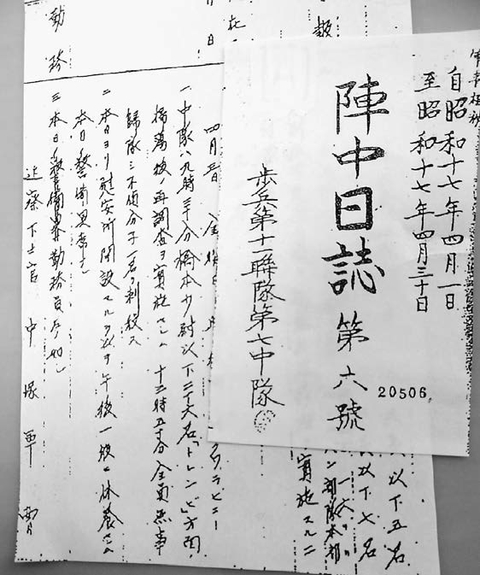 自昭和十七年四月一日
至昭和十七年四月三十日
陣中日誌 第六號
20506
歩兵第十一聯隊第七中隊
以下五名
以下七名
部隊本部
實施スルニ
四月三日
一 中隊ハ九時三十分橋本少尉以下二十六名トレンビ方面ノ
掃蕩後ノ再調査ヲ實施セシム 十三時五十分全員無事
歸隊ス不偵分子一名ヲ刺殺ス
二 本日ヨリ慰安所開設セルヲ以テ午後一般ニ休養セシム
本日ノ警備異常ナシ
三 本日ノ警備並勤務員左ノ如シ
下士官 中塚軍曹
勤務